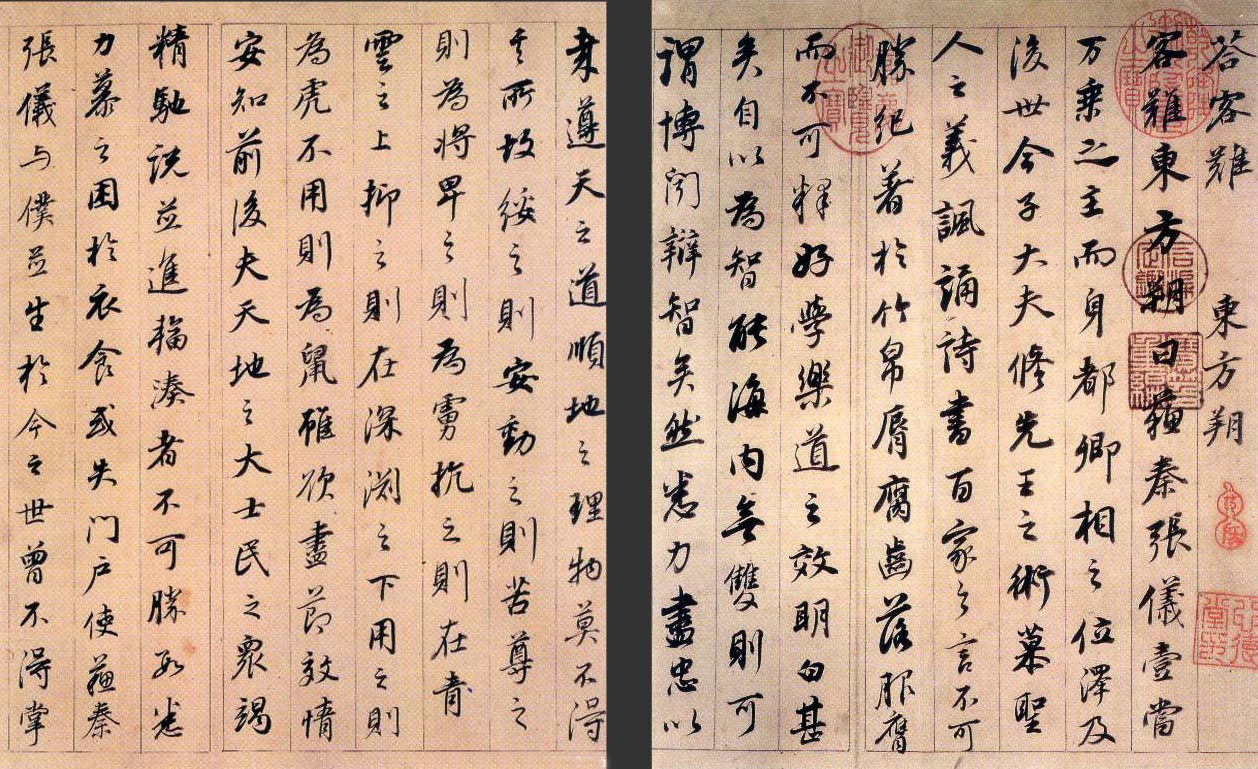 荅客難 東方朔
客難東方朔曰蘇秦張儀壹當
万乘之主而身都卿相之位澤及
後世今子大夫修先王之術慕聖
人之義諷誦詩書百家之言不可
勝紀著於竹帛脣腐齒落服膺
而不可釋好學樂道之效明白甚
矣自以為智能海内無雙則可
謂博聞辯智矣然悉力盡忠以
遵天之道順地之理物莫不得
其所故綏之則安動之則苦尊之
則為將卑之則為虜抗之則在青
雲之上抑之則在深淵之下用之則
為虎不用則為鼠雖欲盡節效情
安知前後夫天地之大士民之眾竭
精馳說並進輻湊者不可勝數悉
力慕之困於衣食或失門戶使蘇秦
張儀与僕並生於今之世曾不得掌